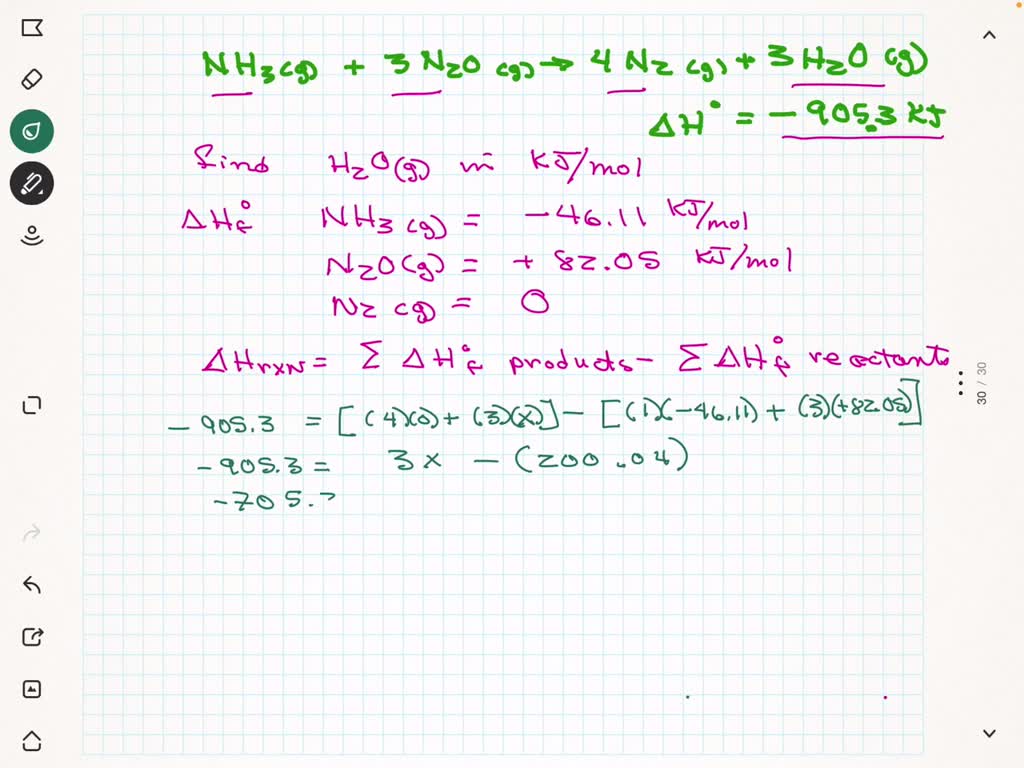 NH3(g) + 3N2O(g) → 4N2(g) + 3H2O(g)
ΔH° = -905.3 KJ
find H2O(g) in KJ/mol
ΔHf° NH3(g) = -46.11 KJ/mol
N2O(g) = +82.05 KJ/mol
N2(g) = 0
ΔHrxn = Σ ΔHf° products - Σ ΔHf° reactants
-905.3 = [(4)(0) + (3)(x)] - [(1)(-46.11) + (3)(+82.05)]
-905.3 = 3x - (200.04)
-705.
30 / 30